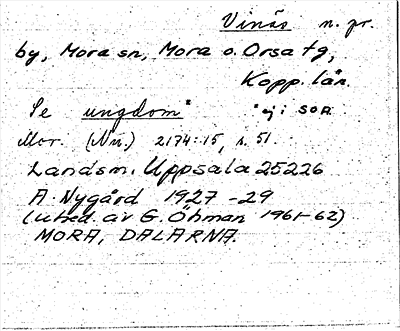 Vinäs n. pr.
by, Mora sn, Mora o. Orsa tg,
Kopp. län.
Se ungdom* *ej i SOA
Mor. (Nu.) 2174:15, s. 51.
Landsm. Uppsala 25226
A. Nygård 1927-29
(utred. av G. Öhman 1961-62)
MORA, DALARNA.